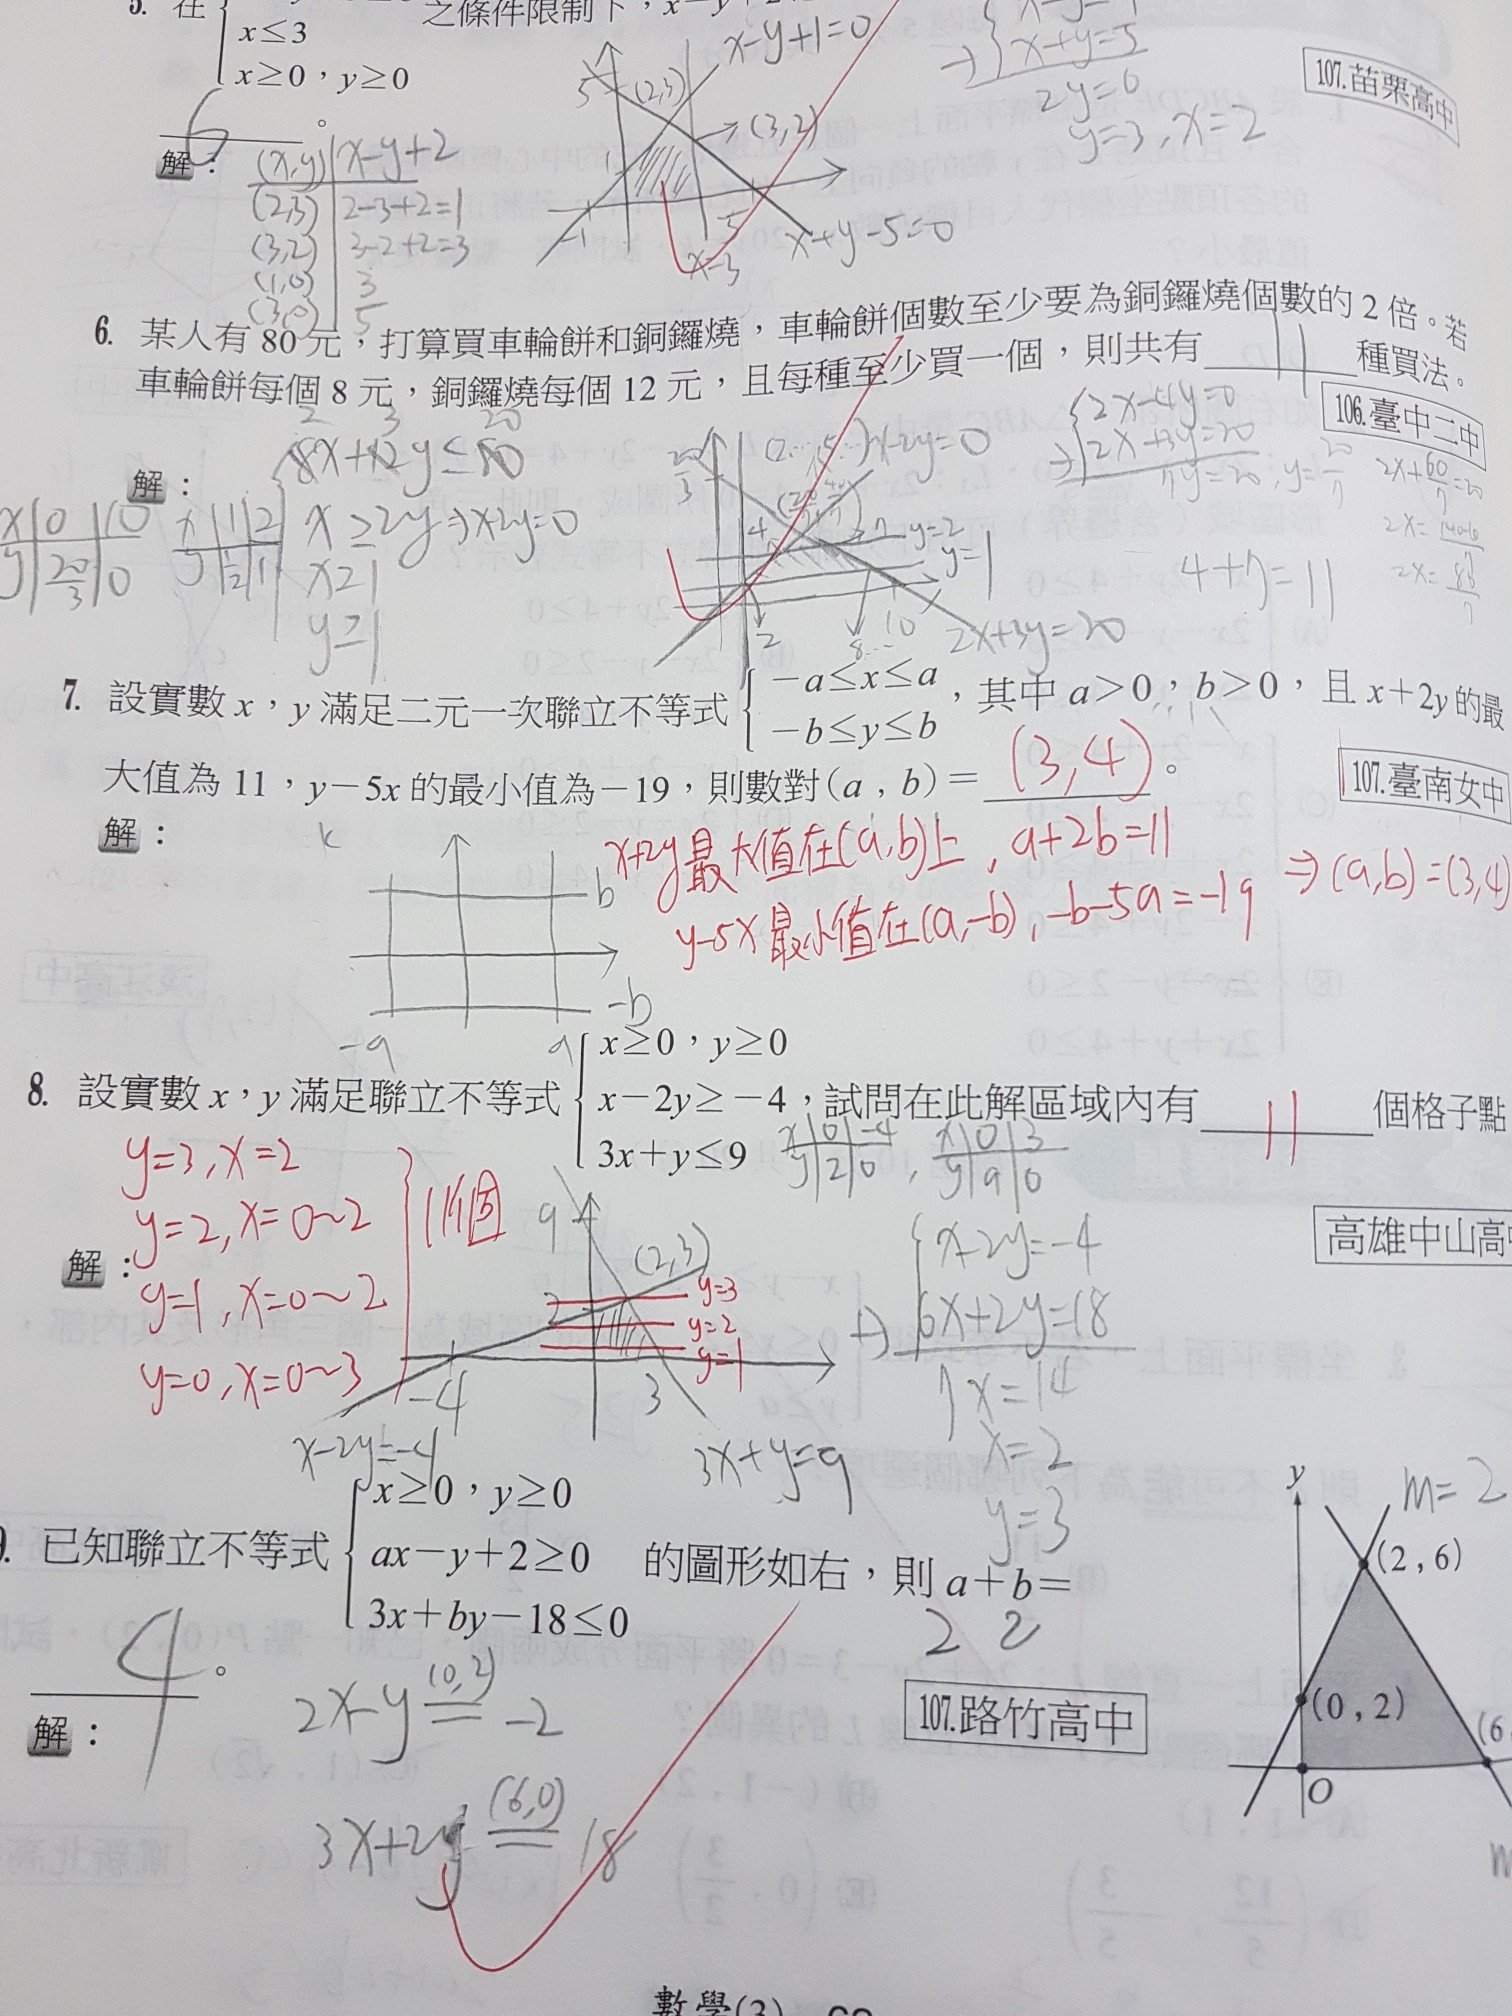 5. 在
x≤3
x≥0，y≥0
之條件限制下，
x-y+1=0
x+y=5
2y=6
y=3, x=2
107.苗栗高中
6
解：
(x,y) x-y+2
(2,3) 2-3+2=1
(3,2) 3-2+2=3
(1,0) 3
(3,0) 5
5
(2,3)
(3,2)
1
-1
5
x=3
x+y-5=0
6. 某人有 80 元，打算買車輪餅和銅鑼燒，車輪餅個數至少要為銅鑼燒個數的 2 倍。若
車輪餅每個 8 元，銅鑼燒每個 12 元，且每種至少買一個，則共有 11 種買法。
106.臺中二中
解：
2 3 20
8x+12y≤80
x≥2y⇒x-2y=0
x≥1
y≥1
x 0 10
y 20/3 0
x 1 2
y 1/2 1
x-2y=0
y=2
y=1
2x+3y=20
2
8
10
2x-4y=0
2x+3y=20
7y=20, y=20/7
2x+60/7=20
4+7=11
7. 設實數 x，y 滿足二元一次聯立不等式
-a≤x≤a
-b≤y≤b
，其中 a>0，b>0，且 x+2y 的最
大值為 11，y-5x 的最小值為-19，則數對(a，b)= (3,4)。
107.臺南女中
解：
x+2y最大值在(a,b)上, a+2b=11
y-5x最小值在(a,-b), -b-5a=-19
⇒(a,b)=(3,4)
b
-b
-a
a
8. 設實數 x，y 滿足聯立不等式
x≥0，y≥0
x-2y≥-4
3x+y≤9
，試問在此解區域內有 11 個格子點
x 0 -4
y 2 0
,
x 0 3
y 9 0
高雄中山高
解：
y=3, x=2
y=2, x=0~2
y=1, x=0~2
y=0, x=0~3
11個
9
(2,3)
2
y=3
y=2
y=1
-4
3
x-2y=-4
3x+y=9
x-2y=-4
6x+2y=18
7x=14
x=2
y=3
已知聯立不等式
x≥0，y≥0
ax-y+2≥0
3x+by-18≤0
的圖形如右，則 a+b=
2 2
4。
107.路竹高中
解：
2x-y (0,2) = -2
3x+2y (6,0) = 18
y
m=2
(2，6)
(0，2)
(6
O
m
數學(3)